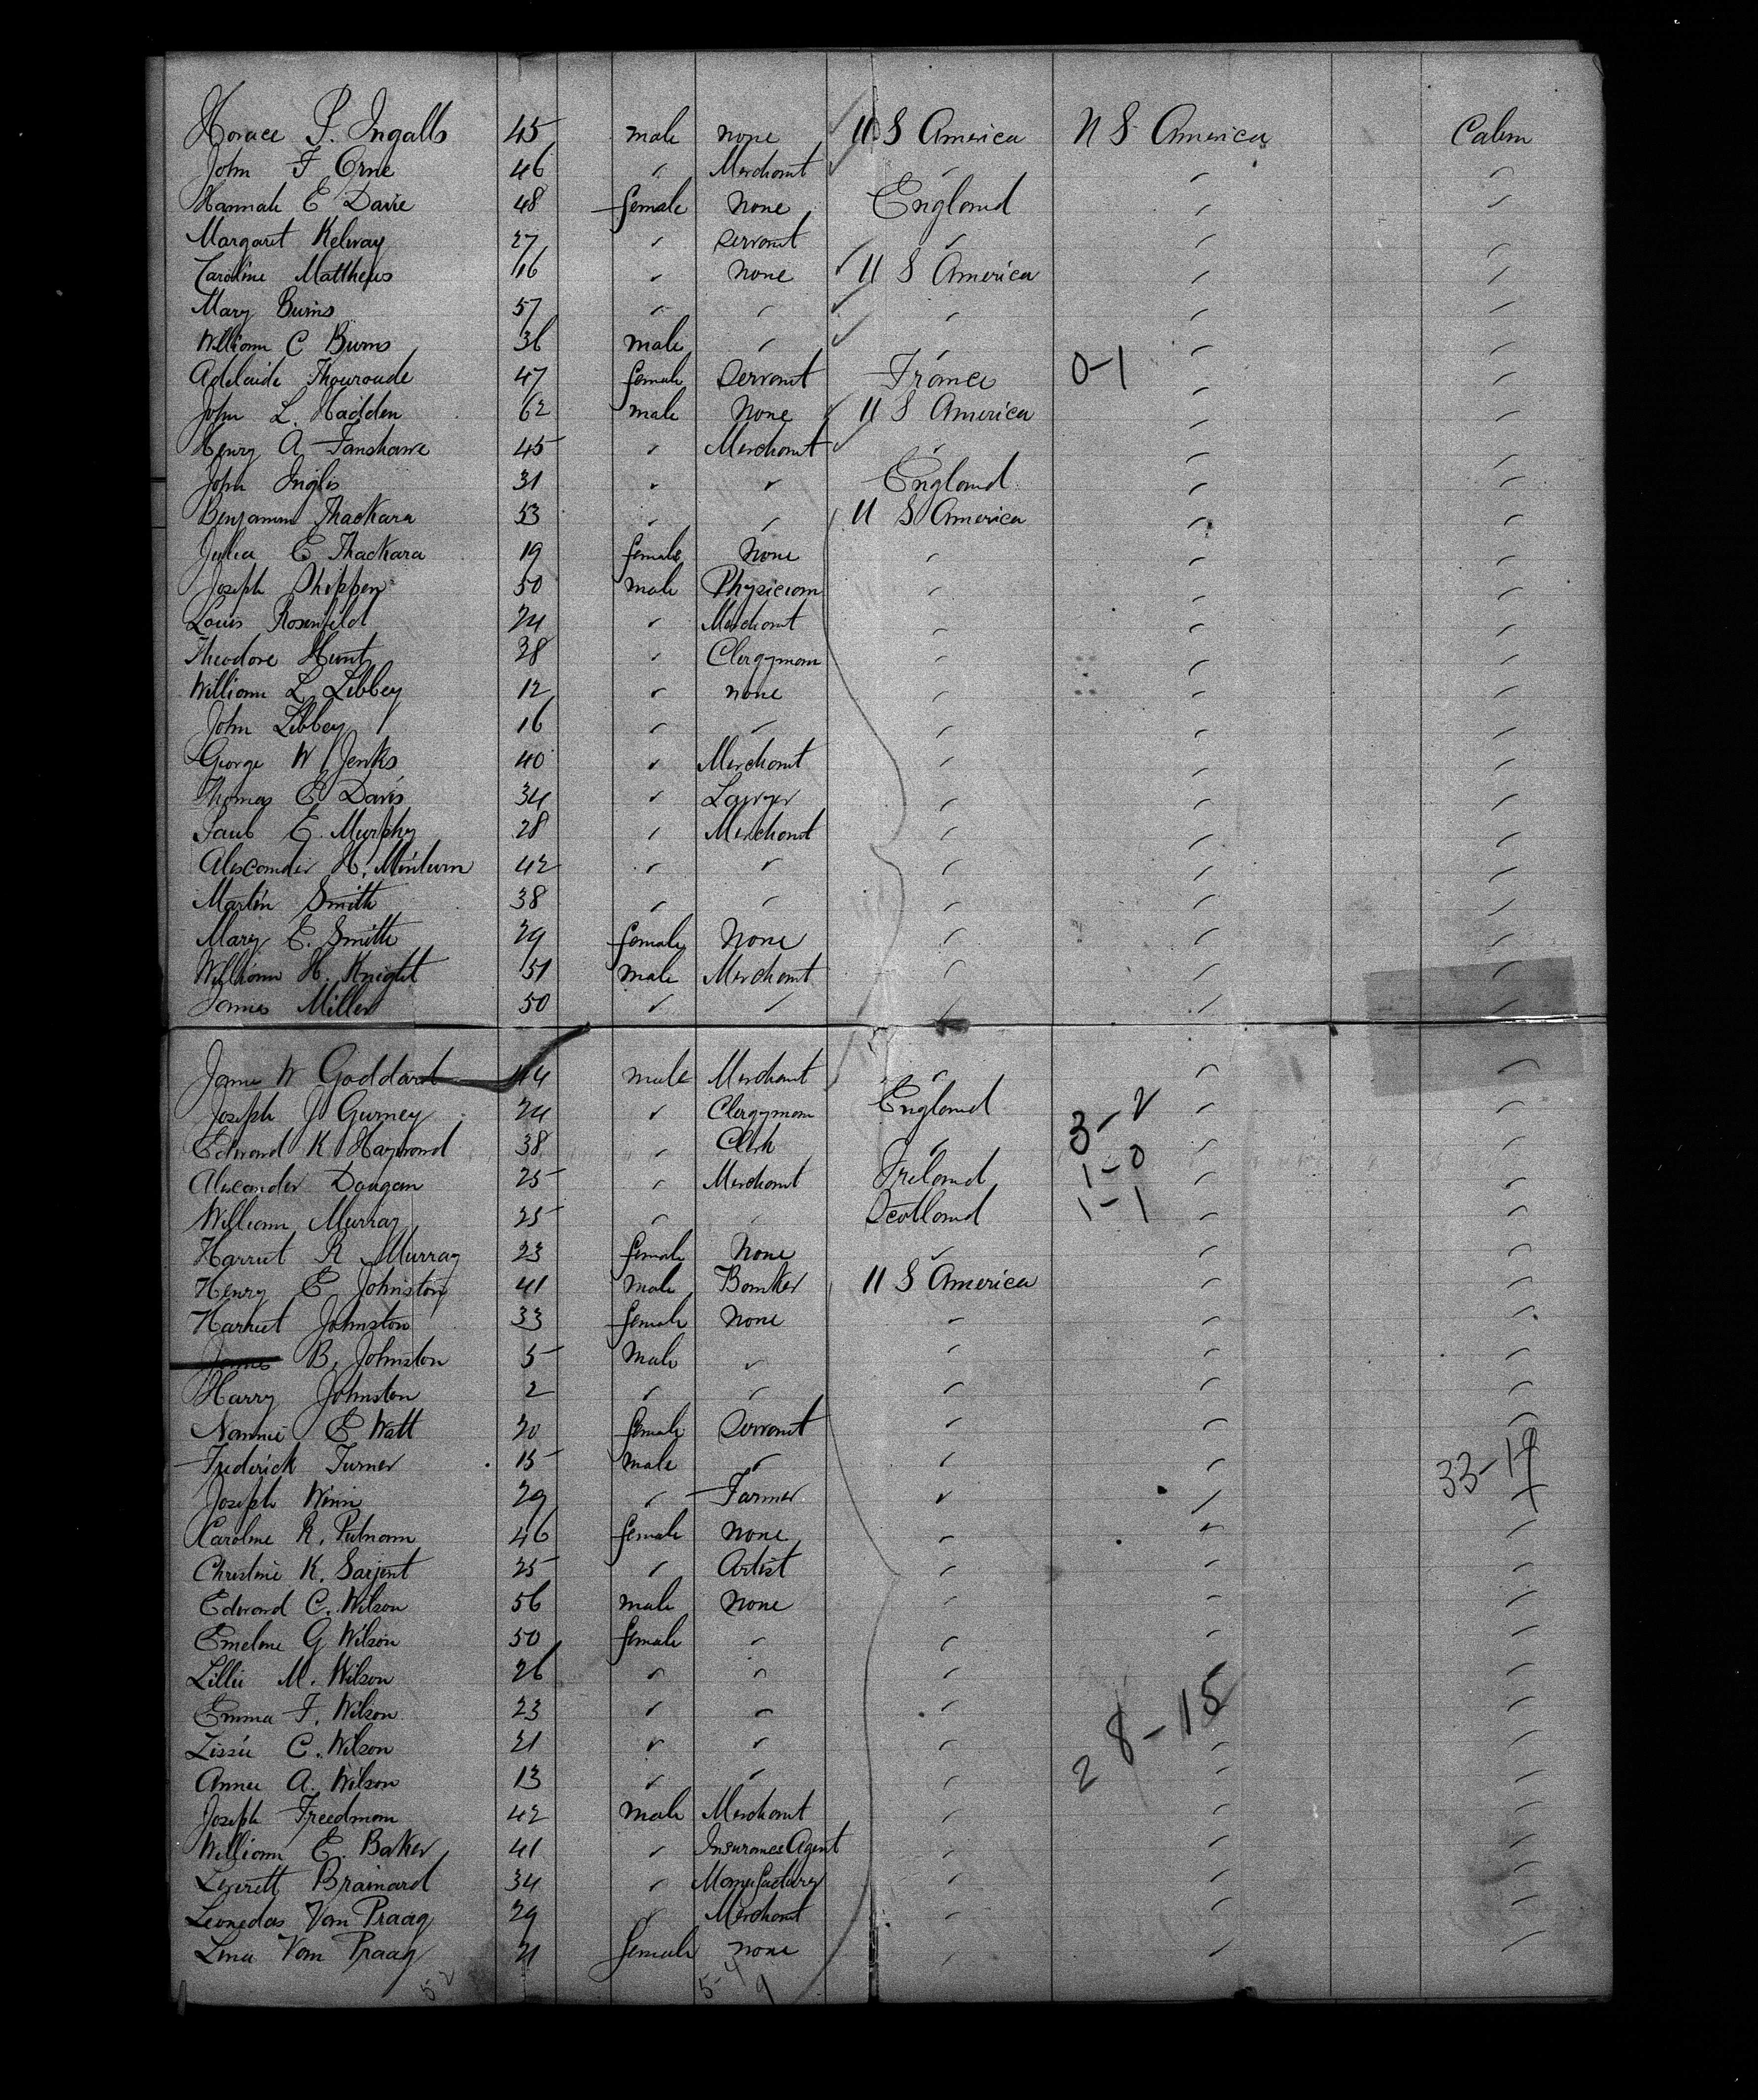 Horace P. Ingalls 45 male none U S America U S America Cabin
John F Orne 46 " Merchant " " "
Hannah E Davie 48 female None England " "
Margaret Kelway 27 " Servant " " "
Caroline Matthews 16 " None U S America " "
Mary Burns 57 " " " " "
William C Burns 36 male " " " "
Adelaide Thouroude 47 female Servant France 0-1 " "
John L. Hadden 62 male None U S America " "
Henry A Fanshawe 45 " Merchant " " "
John Inglis 31 " " England " "
Benjamin Thackara 53 " " U S America " "
Julia E Thackara 19 female None " " "
Joseph Shippen 50 male Physician " " "
Louis Rosenfeld 24 " Merchant " " "
Theodore Hunt 38 " Clergyman " " "
William L Libbey 12 " none " " "
John Libbey 16 " " " " "
George W Jenks 40 " Merchant " " "
Thomas E Davis 34 " Lawyer " " "
Paul E. Murphy 28 " Merchant " " "
Alexander H. Minturn 42 " " " " "
Martin Smith 38 " " " " "
Mary E. Smith 29 female None " " "
William H. Knight 51 male Merchant " " "
James Miller 50 " " " " "
James W Goddard 44 male Merchant " " "
Joseph J Gurney 24 " Clergyman England 3-2 " "
Edward K Haywood 38 " Clerk " " "
Alexander Dougan 25 " Merchant Ireland 1-0 " "
William Murray 25 " " Scotland 1-1 " "
Harriet R Murray 23 female None " " "
Henry E Johnston 41 male Banker U S America " "
Harriet Johnston 33 female None " " "
James B. Johnston 5 Male " " " "
Harry Johnston 2 " " " " "
Nannie E Watt 20 female Servant " " "
Frederick Turner 15 male " " " 33-19 "
Joseph Winn 29 " Farmer " " "
Caroline R. Putnam 46 female None " " "
Christine K. Sarjent 25 " Artist " " "
Edward C. Wilson 56 male None " " "
Emeline G Wilson 50 female " " " "
Lillie M. Wilson 26 " " " " "
Emma F. Wilson 23 " " " " "
Lissie C. Wilson 21 " " " 28-15 " "
Annie A. Wilson 13 " " " " "
Joseph Freedman 42 male Merchant " " "
William E. Baker 41 " Insurance Agent " " "
Leverett Brainard 34 " " " "
Leonedas Van Praag 29 " Merchant " " "
Lena Van Praag 21 female none " " "
52 5-4 9